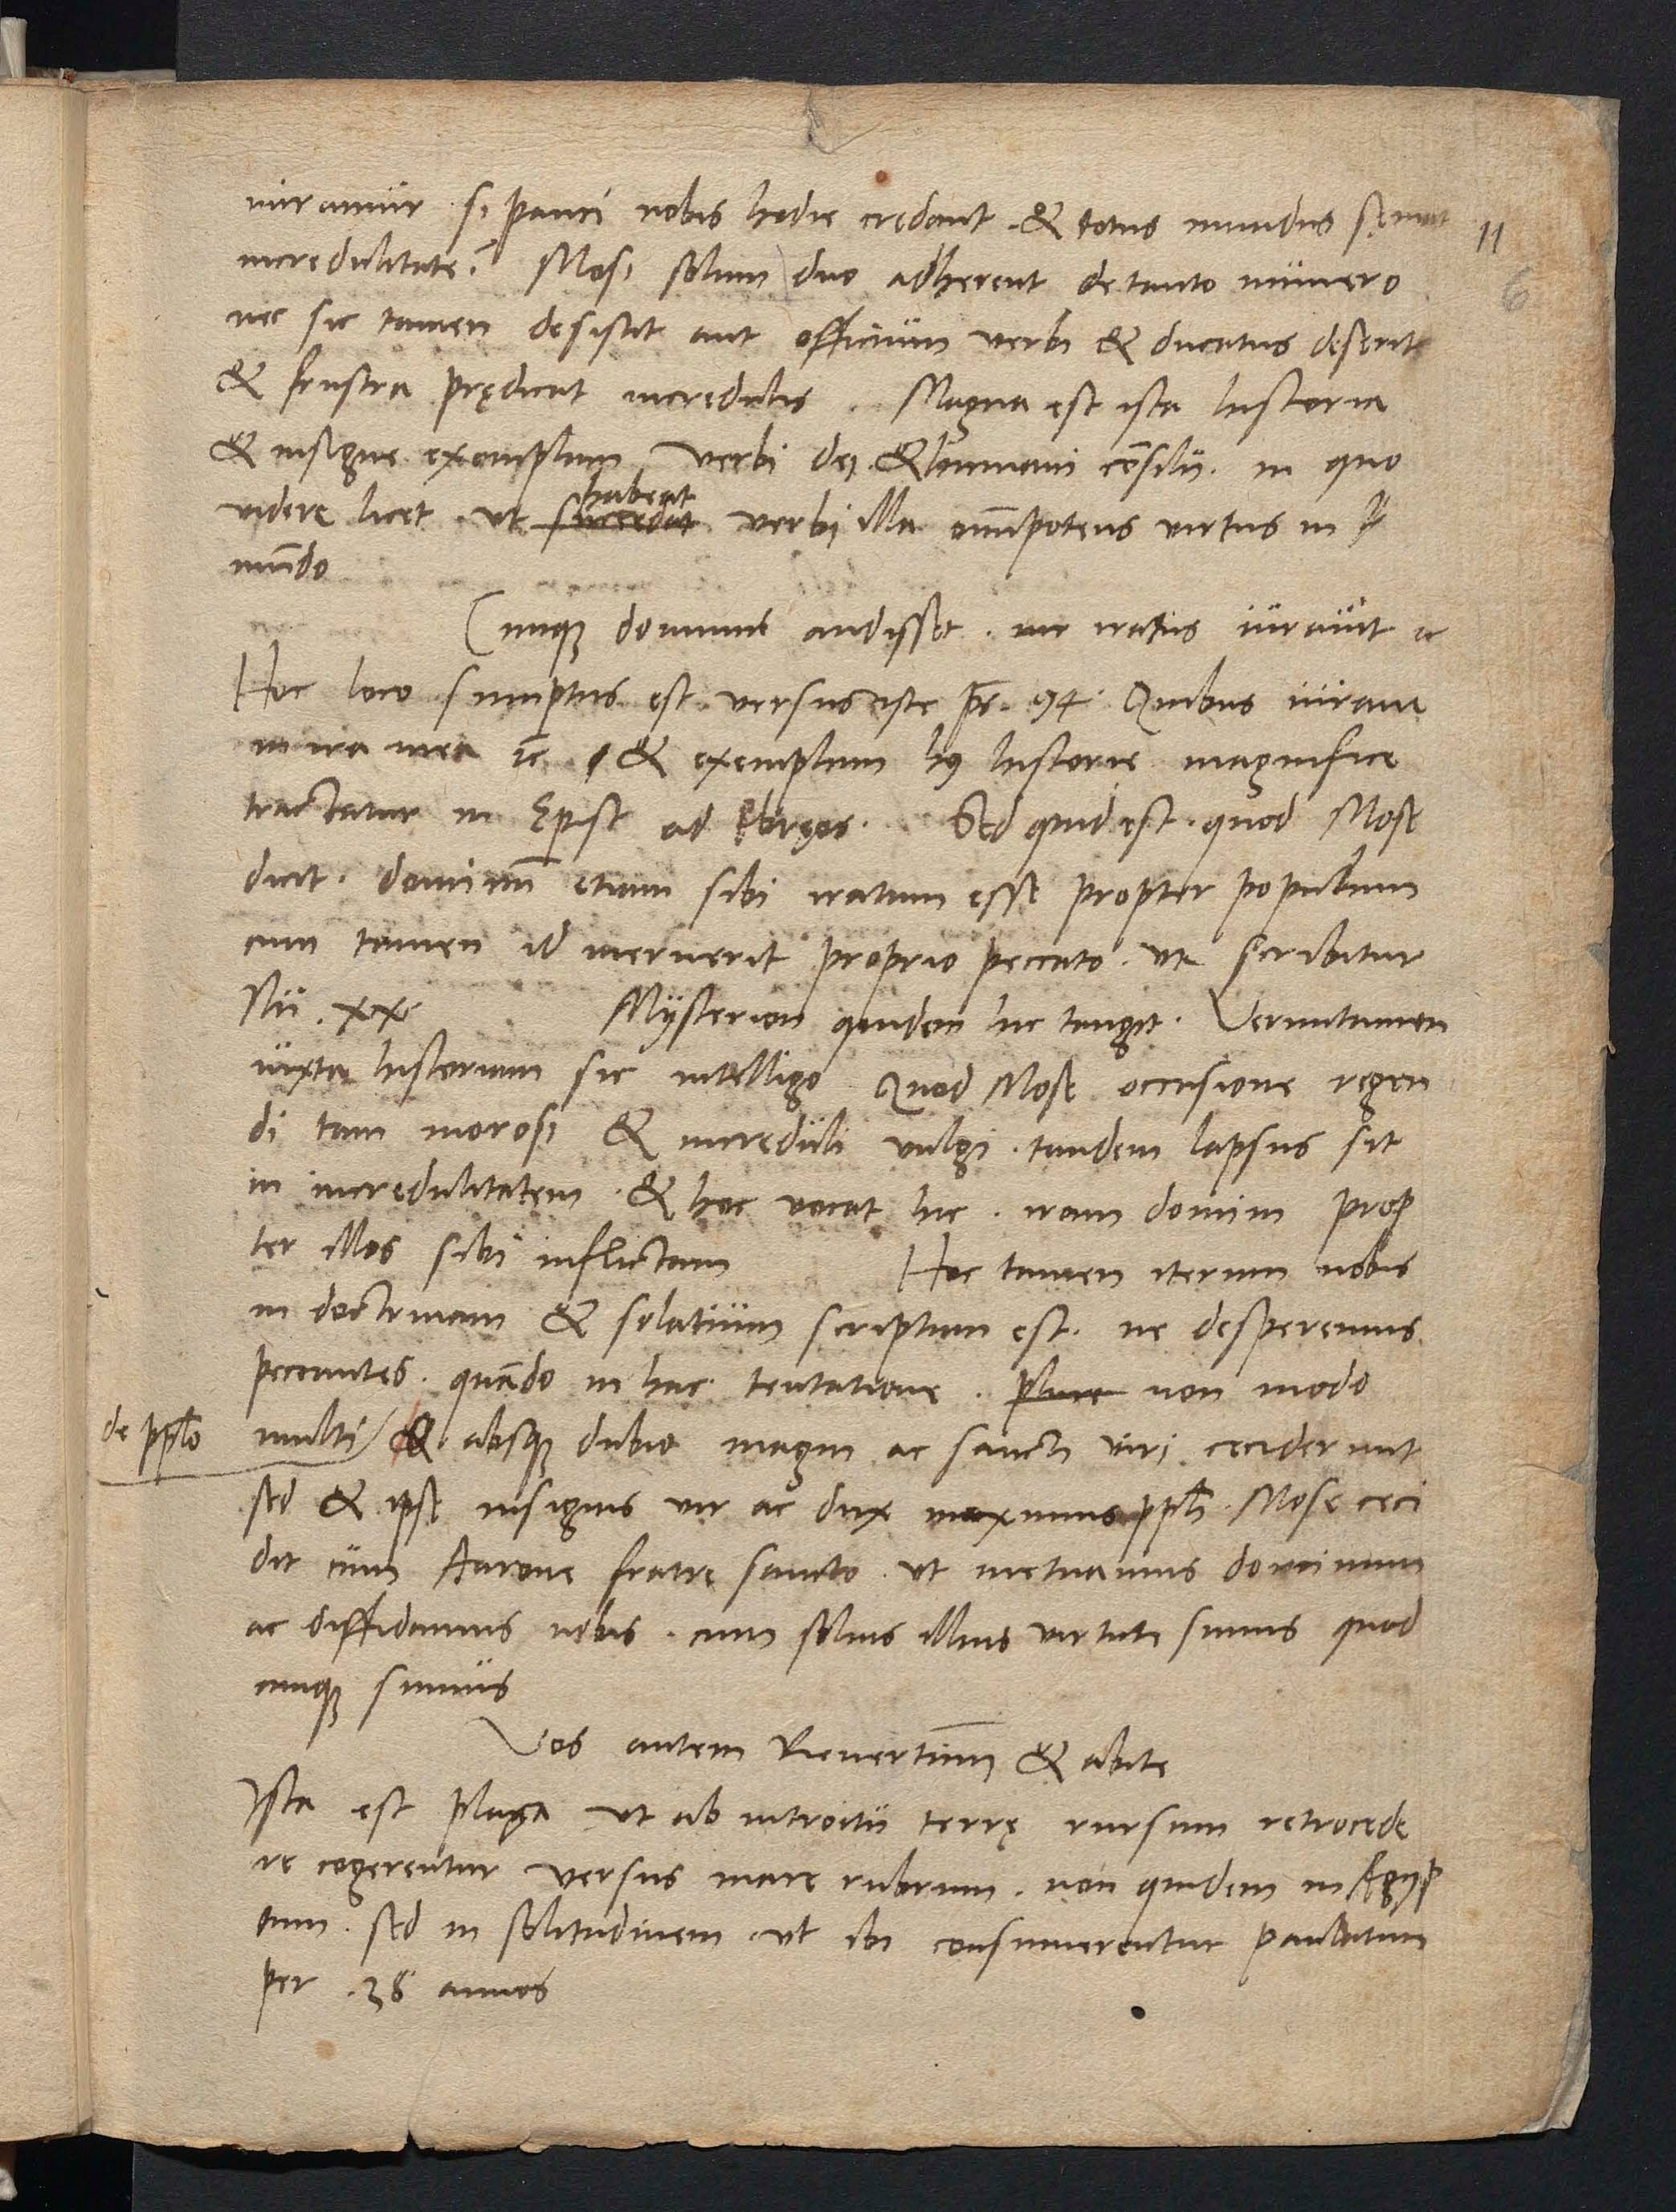 miramur si pauci nobis hodie credant . & totus mundus sęuiat
incredulitate? Mosi solum duo adherent de tanto numero
nec sic tamen desistit aut officium verbi & ducatus deserit
& frustra prędicat incredulis . Magna est ista historia
& insigne exemplum verbi dei . & humani cōsilii . in quo
habeat
videre licet . ut succedat verbi illa om̄ipotens virtus in
mūdo
Cumq3 dominus audisset . iratus iurauit ꝛc
Hoc loco sumptus est versus iste ps. 94. Quibus iuraui
in ira mea ꝛc & exemplum hꝰ historie magnifice
tractatur in Epist ad Ebreos . Sed quid est . quod Mose
dicit . dominū etiam sibi iratum esse propter populum
cum tamen id meruerit proprio peccato . ut scribitur
Nū . xx. Mysterion quidem hic tangit . Veruntamen
iuxta historiam sic intelligo Quod Mose occasione regen
di tam morosi & increduli vulgi . tandem lapsus sit
in incredulitatem . & hoc vocat hic . iram domini prop
ter illos sibi inflictam Hoc tamen iterum nobis
in doctrinam & solatium scriptum est . ne desperemus
peccantes . quādo in hac tentatione . non modo
de pplo
multi & absq3 dubio magni ac sancti viri ceciderunt
sed & ipse insignis vir ac dux maximus ppli . Mose ceci
dit cum Aarone fratre sancto . ut metuamus dominum
ac diffidamus nobis . cum solius illius virtute simus quod
cumq3 simus
Vos autem Reuertimī & abite
Ista est plaga ut ab introitu terrę rursum retrocede
re cogerentur versus mare rubrum . non quidem in Aegyp
tum . sed in solitudinem . ut ibi consumerentur paulatim
per . 38 annos
11
6